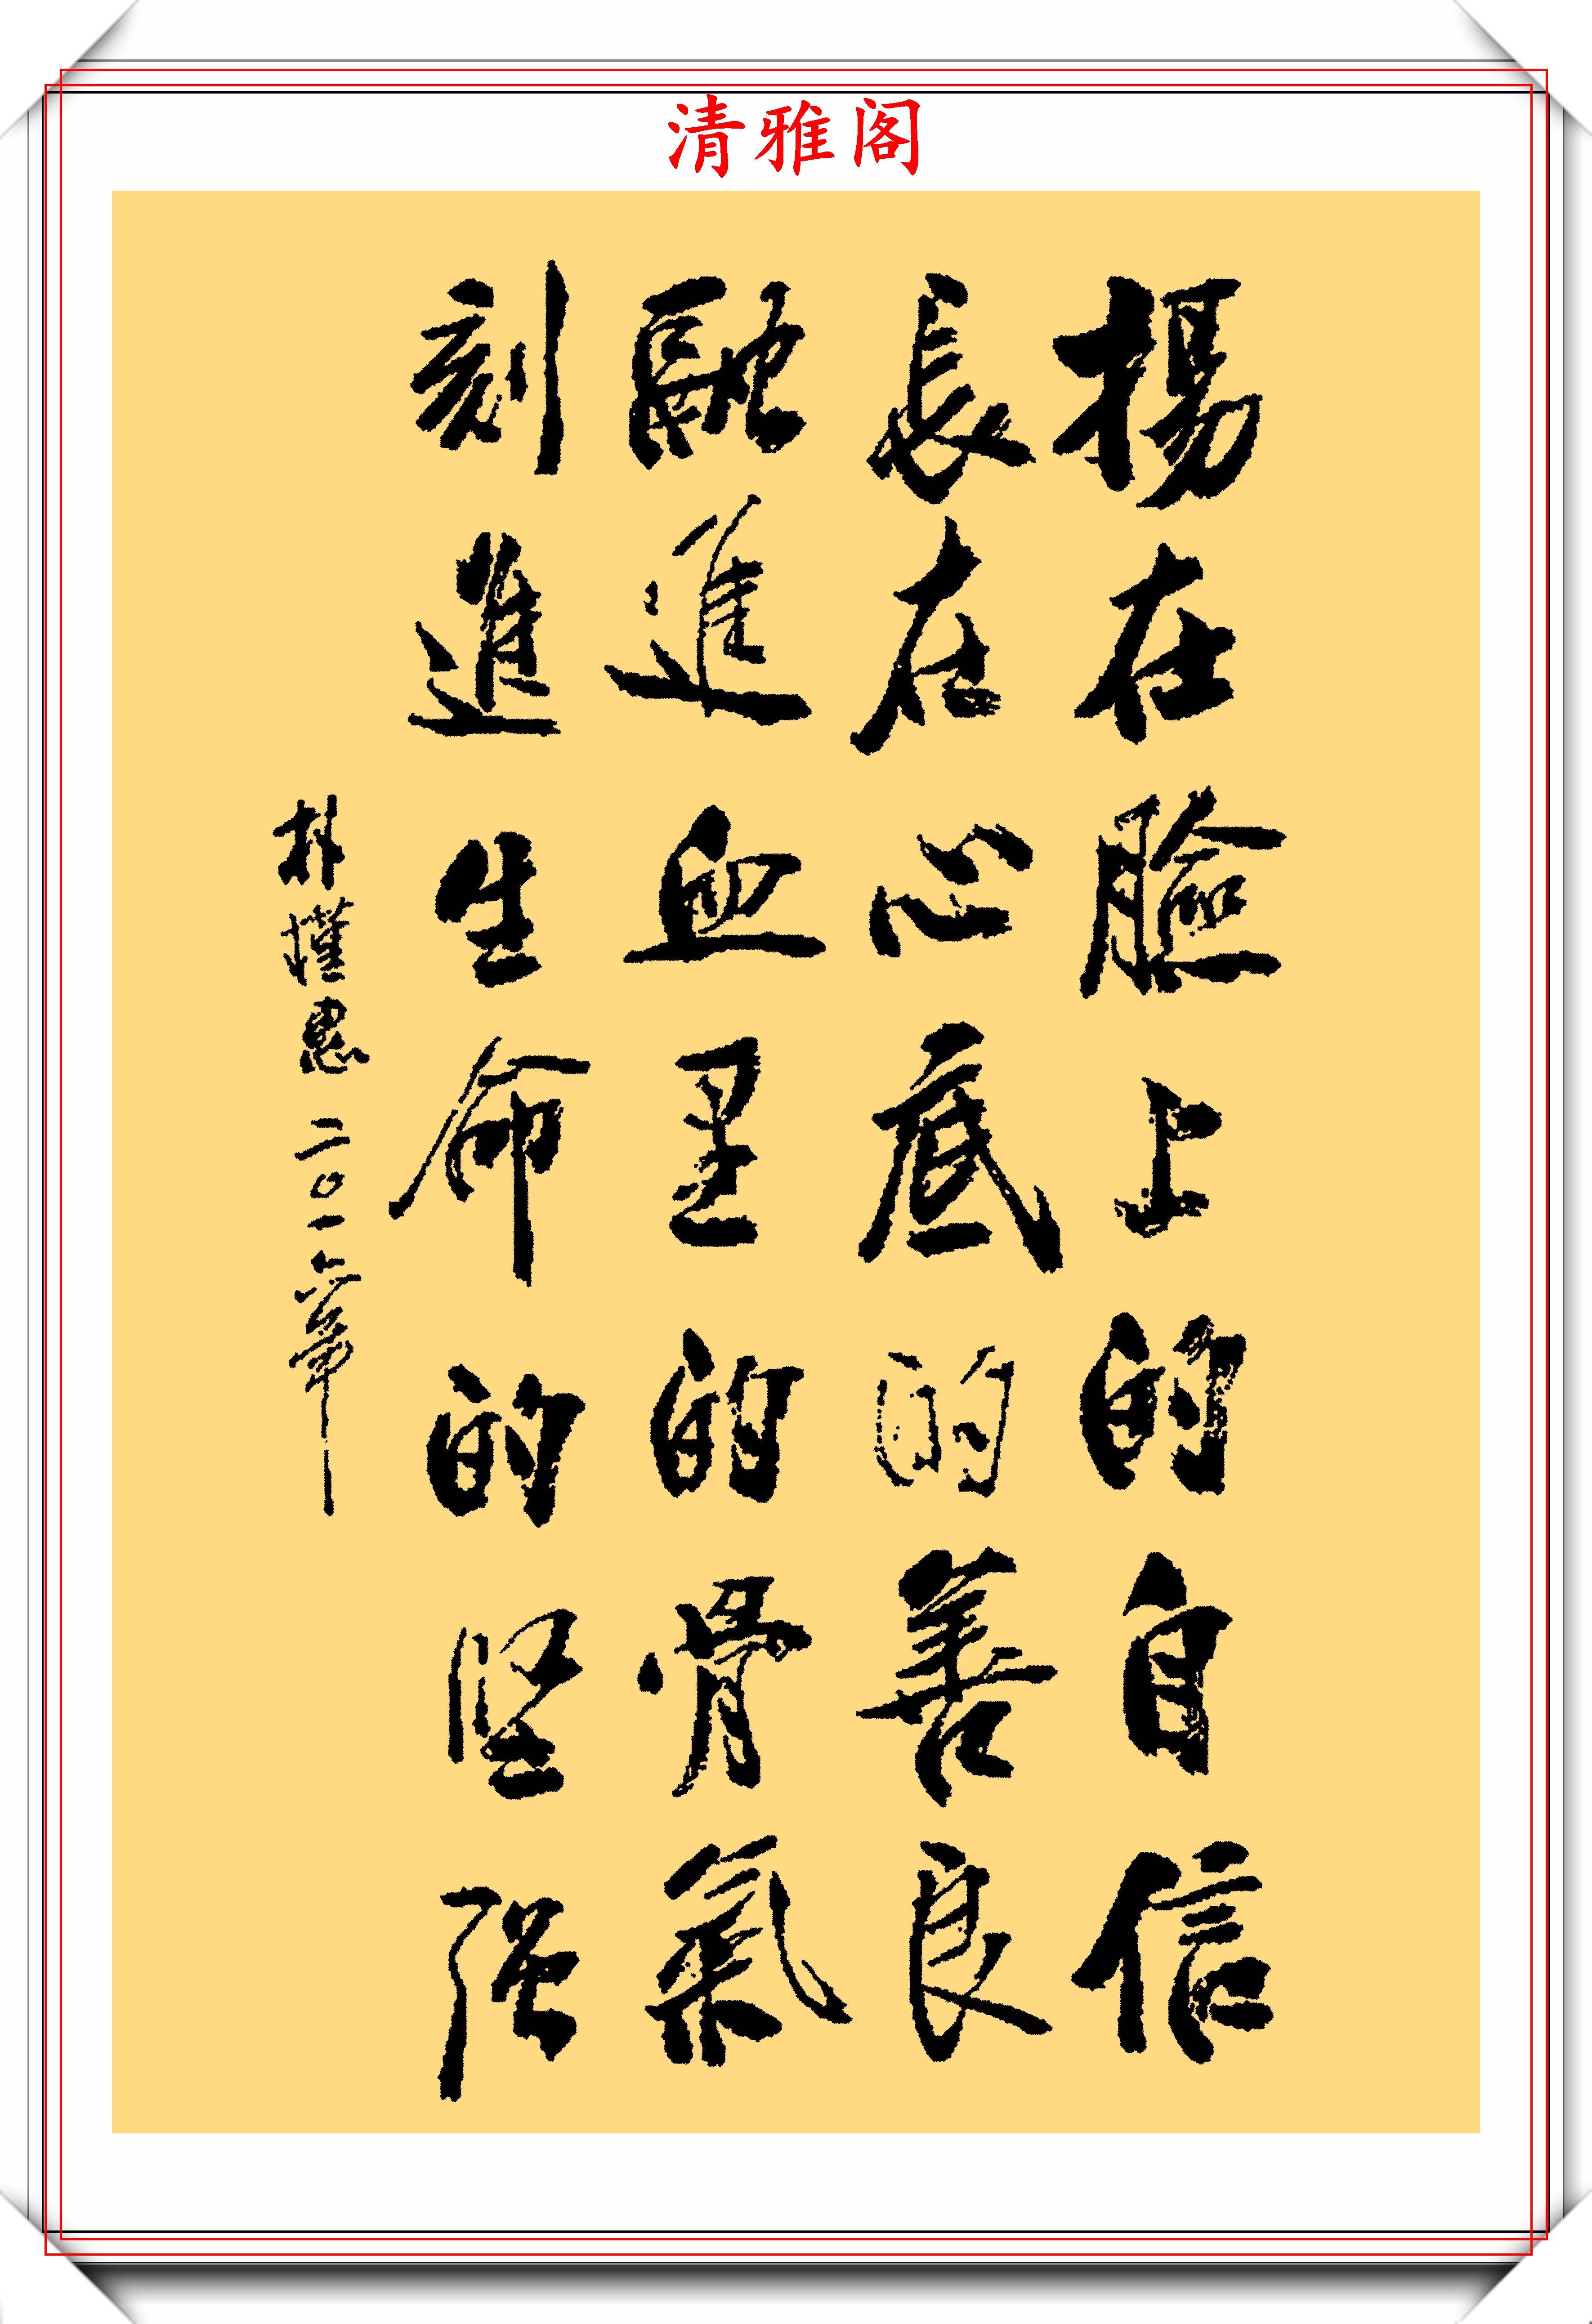 清雅阁
揚在臉上的自信
長在心底的善良
融進血里的骨氣
刻進生命的坚强
朴槿惠 二〇一六年